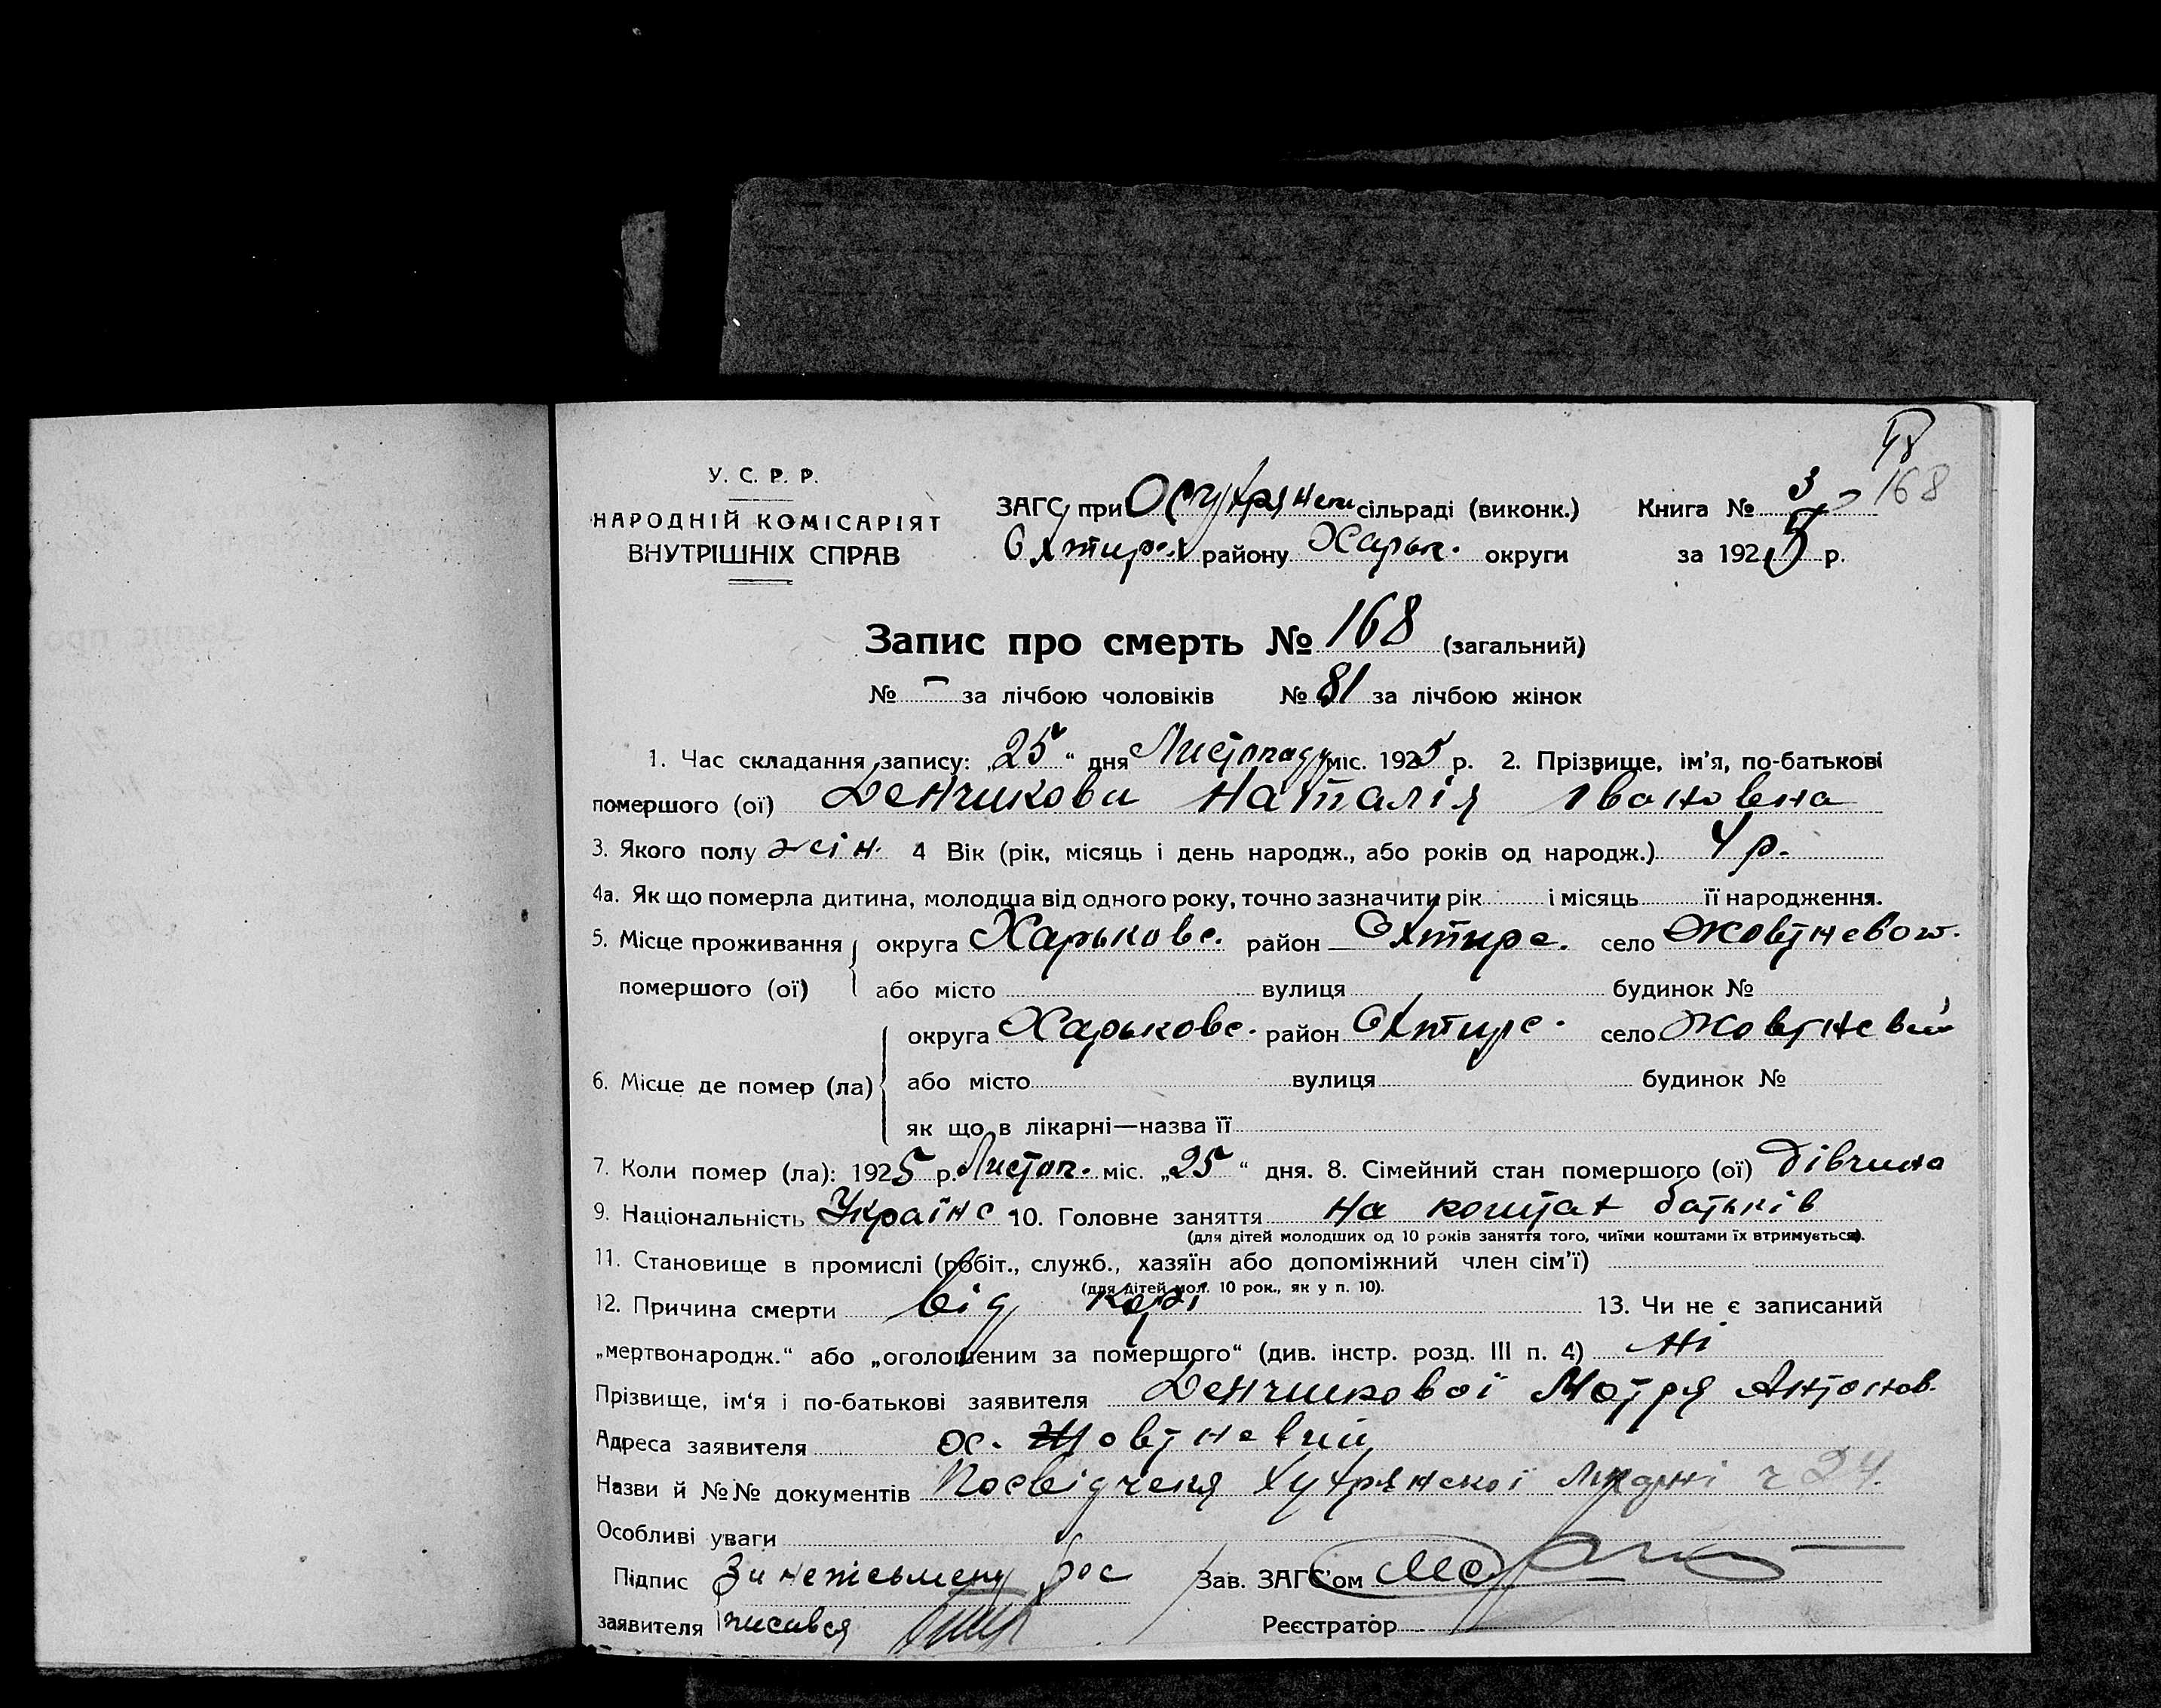 48
У. С. Р. Р.
НАРОДНІЙ КОМІСАРІЯТ
ВНУТРІШНІХ СПРАВ
ЗАГС при сільраді (виконк.) Книга № 3 168
Охтирс. району Харьк. округи за 1925 р.
Запис про смерть № 168 (загальний)
№ – за лічбою чоловіків № 81 за лічбою жінок
1. Час складання запису: „25“ дня Листопаду міс. 1925 р. 2. Прізвище, ім'я, по-батькові
помершого (ої) Денчикова Наталія Івановена
3. Якого полу жін. 4 Вік (рік, місяць і день народж., або років од народж.) 4 р.
4а. Як що померла дитина, молодша від одного року, точно зазначити рік і місяць її народження.
5. Місце проживання округа Харьковс. район Охтирс. село
помершого (ої) або місто вулиця будинок №
округа Харьковс. район Охтирс. село Жовтневий
6. Місце де помер (ла) або місто вулиця будинок №
як що в лікарні—назва її
7. Коли помер (ла): 1925 р. Листоп. міс. „25“ дня. 8. Сімейний стан помершого (ої) Дівчина
9. Національність Українс 10. Головне заняття На коштах батьків
(для дітей молодших од 10 років заняття того, чиїми коштами їх втримується).
11. Становище в промислі (робіт., служб., хазяїн або допоміжний член сім'ї)
(для дітей мол. 10 рок., як у п. 10).
12. Причина смерти від корі 13. Чи не є записаний
„мертвонародж.“ або „оголошеним за помершого“ (див. інстр. розд. III п. 4) Ні
Прізвище, ім'я і по-батькові заявителя Денчикової Мотря Антонов.
Адреса заявителя ос. Жовтневий
Назви й №№ документів Посвідченя Хухрянської ч 24.
Особливі уваги
Підпис За неписьмену рос
Зав. ЗАГС'ом
заявителя писався
Реєстратор